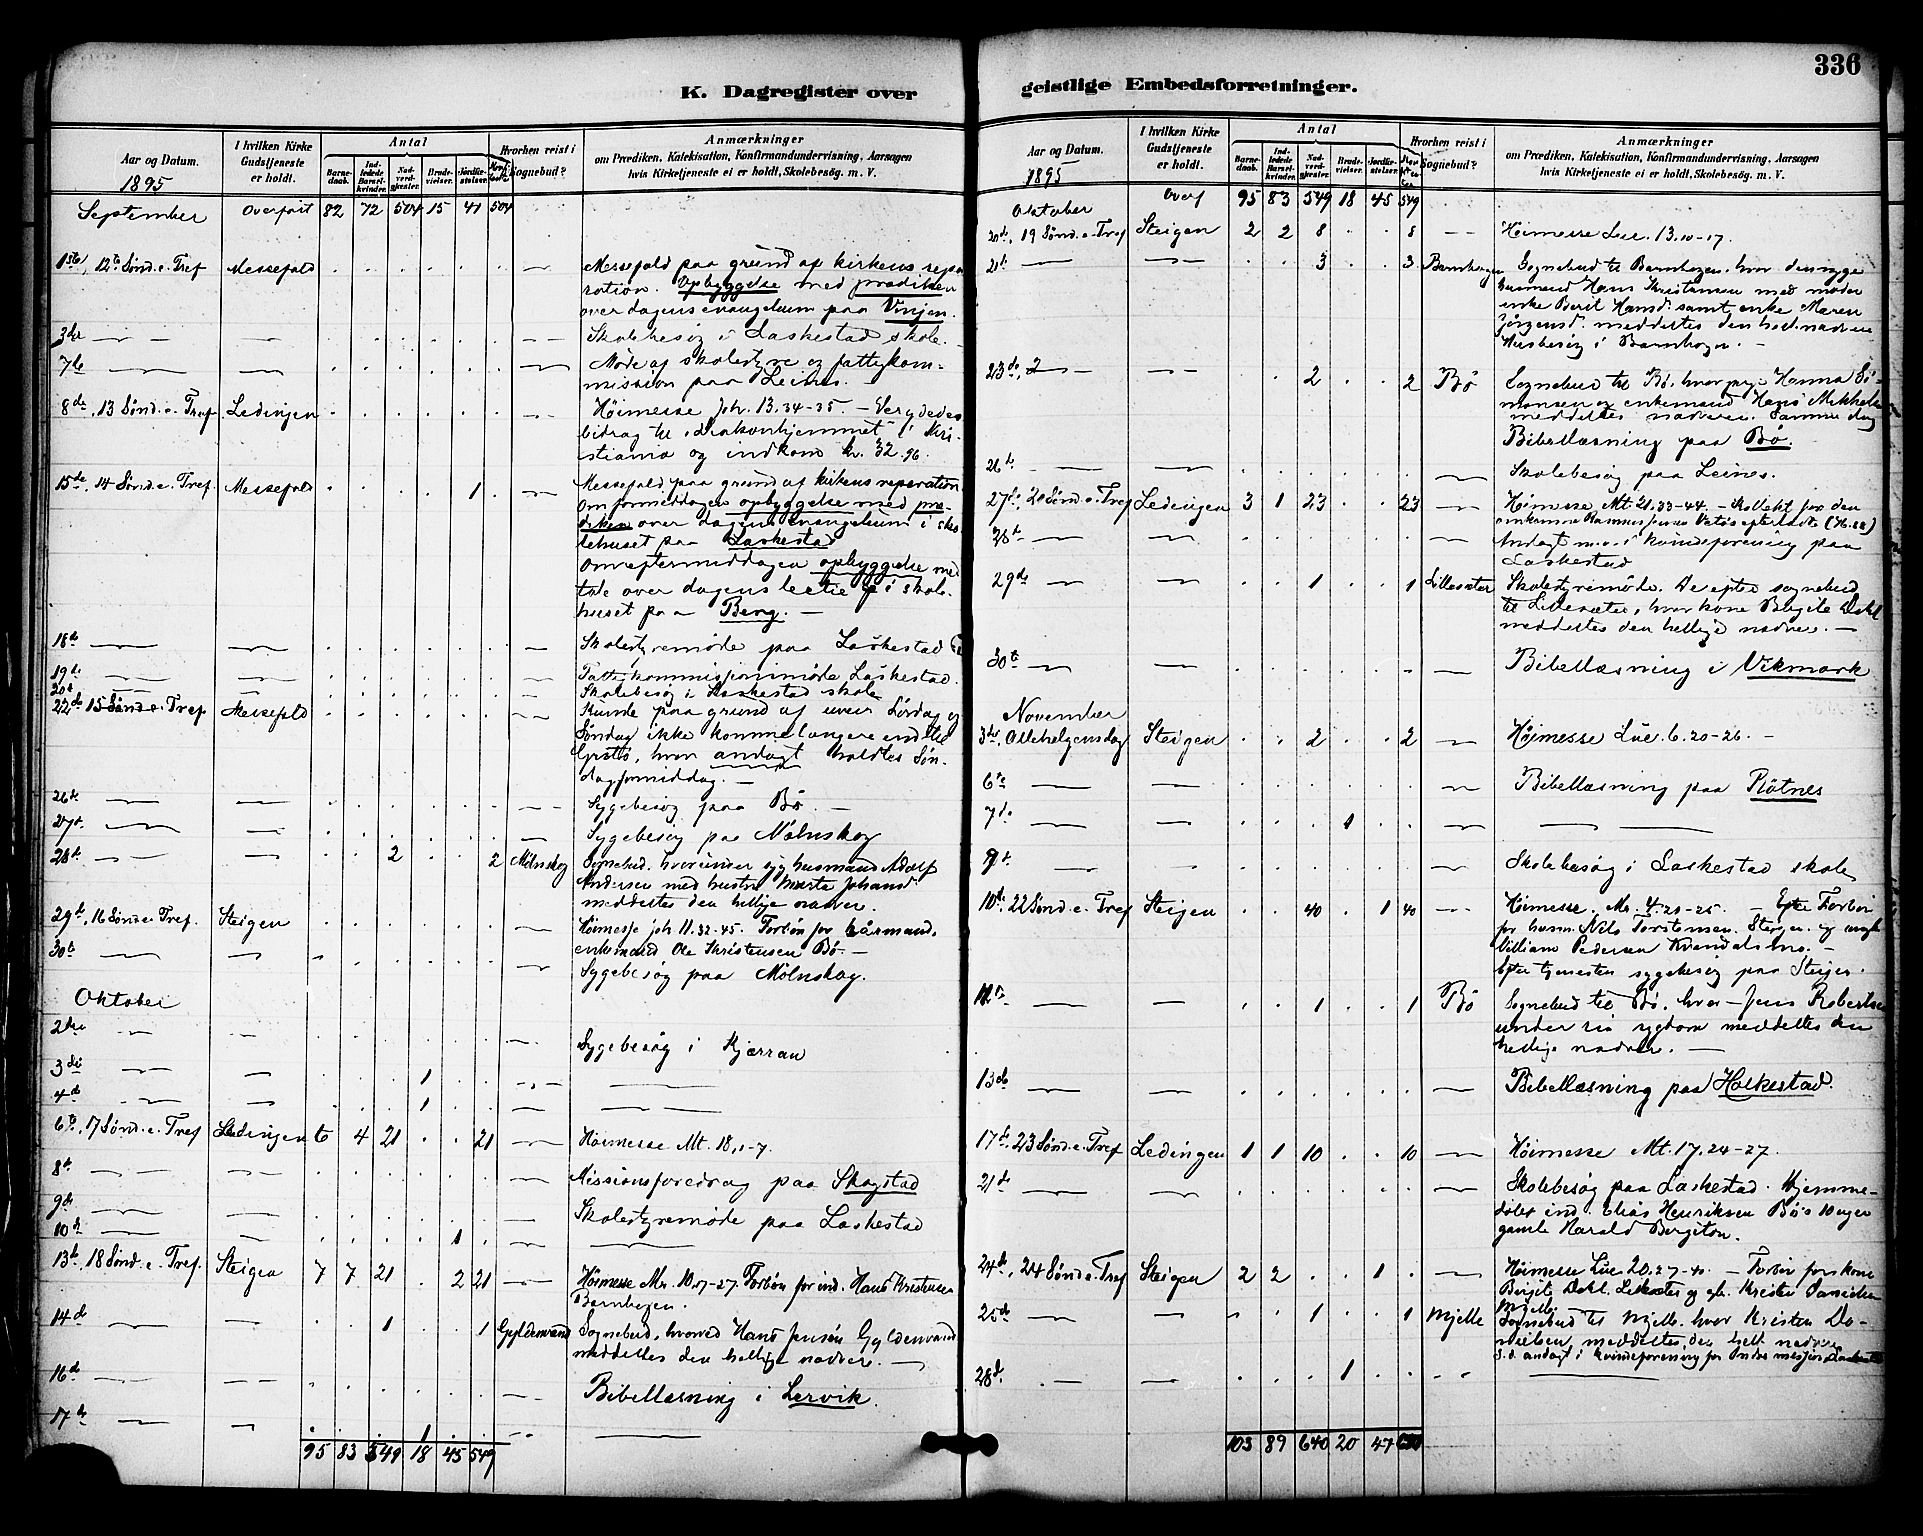 336
K. Dagregister over
geistlige Embedsforretninger.
Aar og Datum.
1895
I hvilken Kirke
Gudstjeneste
er holdt.
Antal
Barne-
daab.
Ind-
ledede
Barsel-
kvinder.
Nad-
verd-
gjester.
Brude-
vielser.
Jordfæ-
stelser.
Hvorhen reist i
Sognebud?
Anmærkninger
om Prædiken, Katekisation, Konfirmandundervisning, Aarsagen
hvis Kirketjeneste ei er holdt, Skolebesøg. m. V.
September Overført 82 72 504 15 41 504
1ste, 12te Sønd. e. Tref Messefald Messefald paa grund af kirkens repa-
ration. Opbyggelse med prædiken
over dagens evangelium paa Vinjen.
3die Skolebesøg i Laskestad skole.
7de Møde af skolestyre og fattigkom-
mission paa Leines.
8de, 13 Sønd. e. Tref Ledingen Høimesse Joh. 13.34-35. -
bidrag til diakonhjemmet i Kri-
stiania og indkom kr. 32.96.
15de, 14 Sønd. e. Tref. Messefald 1 Messefald paa grund af kirkens reparation.
Om formiddagen opbyggelse med præ-
diken over dagens evangelium i sko-
lehuset paa Laskestad
Om eftermiddagen opbyggelse med
tale over dagens lectie i skole-
huset paa Berg. -
18de Skolestyremøde paa Laskestad
19de Fattigkommissionsmøde Laskestad.
20de Skolebesøg i Laskestad skole
22de 15 Sønd. e. Tref. Messefald Kunde paa grund af uveir Lørdag og
Søndag ikke komme længere end til
hvor andagt holdtes Søn-
dag formiddag. -
26de Sygebesøg paa Bø. -
27de Sygebesøg paa Mølnskog
28de 2 2 Mølnskog Sognebud, hvorunder syg husmand Adolf
Andersen med hustru Marta Johansd.
meddeltes den hellige nadver.
29de, 16 Sønd. e. Tref. Steigen Høimesse Joh. 11.32-45. Forbøn for kårmand,
enkemand Ole Kristensen Bø. -
30te Sygebesøg paa Mølnskog.
Oktober
2den Sygebesøg i Kjerran
3die 1
4de 1
6te, 17 Sønd. e. Tref Ledingen 6 4 21 21 Høimesse Mt. 18,1-7.
8de Missionsforedrag paa Skagstad
9de Skolestyremøde paa Laskestad
10de 1
13de, 18 Sønd. e. Tref. Steigen 7 7 21 2 21 Høimesse Mr. 10.17-27. Forbøn for ind. Hans Kristensen
Barnhogen.
14de 1 1 Gyldenvand Sognebud, hvorved Hans Jensen Gyldenvand
meddeltes den hellige nadver. -
16de Bibellæsning i Lervik.
17de 1
95 83 549 18 45 549
Aar og Datum.
1895
I hvilken Kirke
Gudstjeneste
er holdt.
Antal
Barne-
daab.
Ind-
ledede
Barsel-
kvinder.
Nad-
verd-
gjester.
Brude-
vielser.
Jordfæ-
stelser.
Hvorhen reist i
Sognebud?
Anmærkninger
om Prædiken, Katekisation, Konfirmandundervisning, Aarsagen
hvis Kirketjeneste ei er holdt, Skolebesøg. m. V.
Oktober Overf 95 83 549 18 45 549
20de, 19 Sønd. e. Tref Steigen 2 2 8 8 Høimesse Luc. 13.10-17.
21de 3 3 Barnhogen Sognebud til Barnhogen, hvor den syge
husmand Hans Kristensen med moder
enke Berit Hansd. samt enke Maren
Jørgensd. meddeltes den hel. nadver.
Husbesøg i Barnhogen. -
23de 2 2 Bø Sognebud til Bø, hvor pige Hanna Si-
monsen og enkemand Hans Mikkelsen
meddeltes nadveren. Samme dag
Bibellæsning paa Bø.
26de Skolebesøg paa Leines.
27de, 20 Sønd. e. Tref Ledingen 3 1 23 23 Høimesse, Mt. 21.33-44. - for den
omkomne Rasmus efterladte
28de Andagt i kvindeforening paa
Laskestad
29de 1 1 Lillesæter Skolestyremøde. Derefter sognebud
til Lillesæter, hvor kone Birgite Dahl
meddeltes den hellige nadver. -
30te Bibellæsning i Vikmark
November
3die, Allehelgensdag Steigen 2 2 Høimesse Luc. 6.20-26. -
6te Bibellæsning paa Røtnes
7de 1
9de Skolebesøg i Laskestad skole
10de, 22 Sønd. e. Tref Steigen 40 1 40 Høimesse. Mr. 4.21-25. - Efter Forbøn
for husm. Nils Torstensen Steigen og ungk.
Villiam Pedersen -
Efter tjenesten sygebesøg paa Steigen.
12te 1 1 Bø Sognebud til Bø, hvor Jens Robertsen
under sin sygdom meddeltes den
hellige nadver. -
13de Bibellæsning paa Holkestad.
17de, 23 Sønd. e. Tref Ledingen 1 1 10 10 Høimesse Mt. 17.24-27.
21de Skolebesøg paa Laskestad. Hjemme-
døbt ind. Elias Henriksen Bø's 10 uger
gamle Harald Bergiton.
24de, 24 Sønd. e. Tref Steigen 2 2 1 Høimesse Luc 20.27-40. - Forbøn for kone
Birgit Dahl, Lillesæter og Kristen Danielsen
Mjelle.
25de 1 1 Mjelle Sognebud til Mjelle, hvor Kristen Da-
nielsen meddeltes den hell. nadver.
S. d. andagt i kvindeforening for Indremission
28de 1
103 89 640 20 47